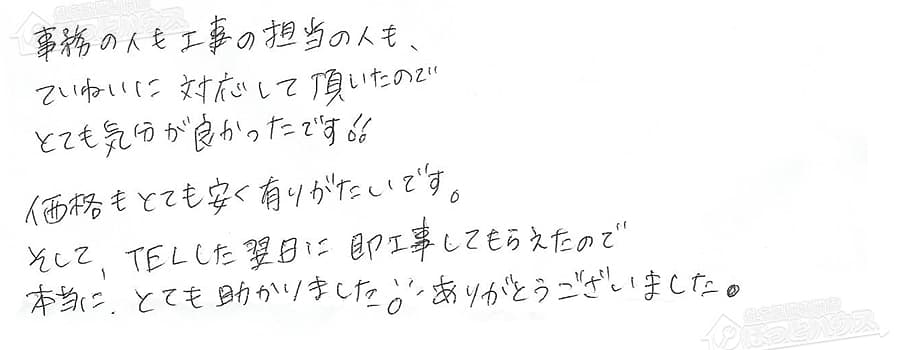 事務の人も工事の担当の人も、
ていねいに対応して頂いたので
とても気分が良かったです!!
価格もとても安く有りがたいです。
そして、TELした翌日に即工事してもらえたので
本当に、とても助かりました!! ありがとうございました。